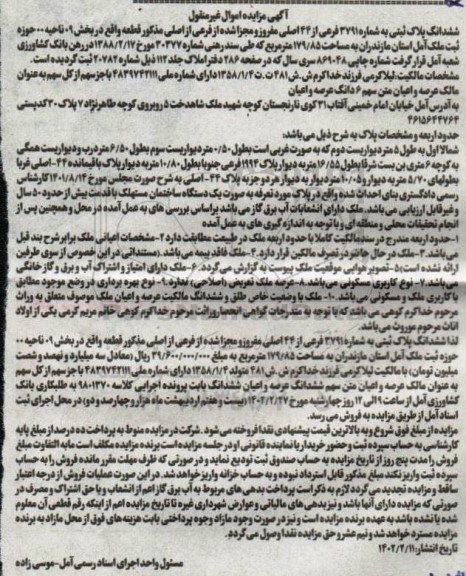 آگهی مزایده اموال غیرمنقول
ششدانگ پلاک ثبتی به شماره ۳۷۹۱ فرعی از ۴۴ اصلی مفروز و مجزا شده از فرعی از اصلی مذکور قطعه واقع در بخش ۰۹ ناحیه ۰۰ حوزه
ثبت ملک آمل استان مازندران به مساحت ۱۷۹/۸۵ مترمربع که طی سند رهنی شماره ۳۰۳۷۷ مورخ ۱۳۸۸/۲/۱۷ در رهن بانک کشاورزی
شعبه آمل قرار گرفت شماره چاپی ۸۶۹۰۴۸ سری سال که در صفحه ۲۸۶ دفتر املاک جلد ۱۱۲ ذیل شماره ۲۰۷۸۲ ثبت گردیده است.
مشخصات مالکیت: لیلا کرمی فرزند خداکرم ش.ش ۴۸۱ ت.ت ۱۳۵۸/۱/۴ دارای شماره ملی ۴۸۳۹۷۴۲۱۱۱ با جز سهم از کل سهم به عنوان
مالک عرصه و اعیان متن سهم ۶ دانگ عرصه و اعیان
به آدرس آمل خیابان امام خمینی آفتاب ۳۱ کوی نارنجستان کوچه شهید ملک شاهدخت ۵ روبروی کوچه طاهرنژاد ۷ پلاک ۳۰ کدپستی
۴۶۱۵۶۴۴۷۶۴
حدود اربعه و مشخصات پلاک به شرح ذیل می‌باشد:
شمالا اول به طول ۵ متر دیواریست دوم که به صورت غربی است بطول ۰/۵۰ متر دیواریست سوم بطول ۶/۵۰ متر درب و دیواریست همگی
به کوچه ۶ متری بن بست شرقا بطول ۱۶/۵۵ متر به دیوار پلاک ۱۹۹۴ فرعی جنوبا بطول ۱۰/۸۰ متر به دیوار پلاک باقیمانده ۴۴- اصلی غربا
بطولهای ۵/۷۰ متر به دیوار و ۱۰/۰۵ متر دیوار به دیوار هر دو جز به پلاک ۴۴- اصلی به شرح صورت مجلس مورخ ۱۴۰۱/۸/۱۴ کارشناس
رسمی دادگستری بنای احداث شده واقع در پلاک مورد تعرفه به صورت یک دستگاه ساختمان مستهلک با قدمت بیش از حدود ۵۰ سال
و غیرقابل ارزیابی می باشد. ملک دارای انشعابات آب برق گاز می باشد براساس بررسی های به عمل آمده در محل و همچنین پس از
انجام تحقیقات محلی و منطقه ای و با توجه به اندازه گیری های به عمل آمده
۱- حدود اربعه مندرج در سند مالکیت کاملا با حدود اربعه ملک در طبیعت مطابقت دارد ۲- مشخصات اعیانی ملک برابر شرح بند قبل
می باشد. ۳- ملک در حال حاضر در تصرف مالکین قرار دارد. ۴- ملک فاقد بیمه می باشد. (مستنداتی در این خصوص از سوی طرفین
ارائه نشده است) ۵- تصویر هوایی موقعیت ملک پیوست به گزارش می گردد. ۶- ملک دارای امتیاز و اشتراک آب و برق و گاز خانگی
می باشد ۷- نوع کاربری مسکونی می باشد. ۸- عرصه ملک تعریض (اصلاحی) ندارد. ۹- نوع بهره برداری در وضع موجود مطابق
با کاربری ملک و مسکونی می باشد. ۱۰- ملک با وضعیت خاص طلق و ششدانگ مالکیت عرصه و اعیان ملک موصوف متعلق به وراث
مرحوم خداکرم کوهی می باشد که با توجه به مندرجات گواهی انحصار وراثت مرحوم خداکرم کوهی خانم مریم کرمی یکی از اولاد
اناث مرحوم موروث می باشد.
لذا ششدانگ پلاک ثبتی به شماره ۳۷۹۱ فرعی از ۴۴ اصلی مفروز و مجزا شده از فرعی از اصلی مذکور قطعه واقع در بخش ۰۹ ناحیه ۰۰
حوزه ثبت ملک آمل استان مازندران به مساحت ۱۷۹/۸۵ مترمربع به مبلغ ۳۹/۶۰۰/۰۰۰/۰۰۰ ریال (معادل سه میلیارد و نهصد و شصت
میلیون تومان) با مالکیت لیلا کرمی فرزند خداکرم ش.ش ۴۸۱ متولد ۱۳۵۸/۱/۴ دارای شماره ملی ۴۸۳۹۷۴۲۱۱۱ با جز سهم از کل سهم
به عنوان مالک عرصه و اعیان متن سهم ششدانگ عرصه و اعیان ششدانگ بابت پرونده اجرایی کلاسه ۹۸۰۱۳۷۰ به طلبکاری بانک
کشاورزی آمل از ساعت ۹ الی ۱۲ روز چهارشنبه مورخ ۱۴۰۲/۲/۲۷ (بیست و هفتم اردیبهشت ماه هزار و چهارصد و دو) در محل اجرای ثبت
اسناد آمل از طریق مزایده به فروش می رسد.
مزایده از مبلغ فوق شروع و به بالاترین قیمت پیشنهادی نقدا فروخته می شود. شرکت در مزایده منوط به پرداخت ده درصد از مبلغ پایه
کارشناسی به حساب سپرده ثبت و حضور خریدار یا نماینده قانونی او در جلسه مزایده است برنده مزایده مکلف است مابه التفاوت مبلغ
فروش را مدت پنج روز از تاریخ مزایده به حساب صندوق ثبت تودیع نماید و در صورتی که ظرف مهلت مقرر مانده فروش را به حساب
سپرده ثبت واریز نکند مبلغ مذکور قابل استرداد نبوده و به حساب خزانه واریز خواهد شد. در این صورت عملیات فروش از درجه اعتبار
ساقط و مزایده تجدید می گردد لازم به ذکر است پرداخت بدهی های مربوط به آب برق گاز اعم از انشعاب و یا حق اشتراک و مصرف در
صورتی که مزایده دارای آنها باشد و نیز بدهی های مالیاتی و عوارض شهرداری غیره تا تاریخ مزایده اعم از اینکه رقم قطعی آن معلوم
شده یا نشده باشد به عهده برنده مزایده است و نیز در صورت وجود مازاد وجوه پرداختی بابت هزینه های فوق از محل مازاد به برنده
مزایده مسترد خواهد شد و نیم عشر و حق مزایده نقدا وصول می گردد.
تاریخ انتشار: ۱۴۰۲/۲/۱۱
مسئول واحد اجرای اسناد رسمی آمل- موسی زاده